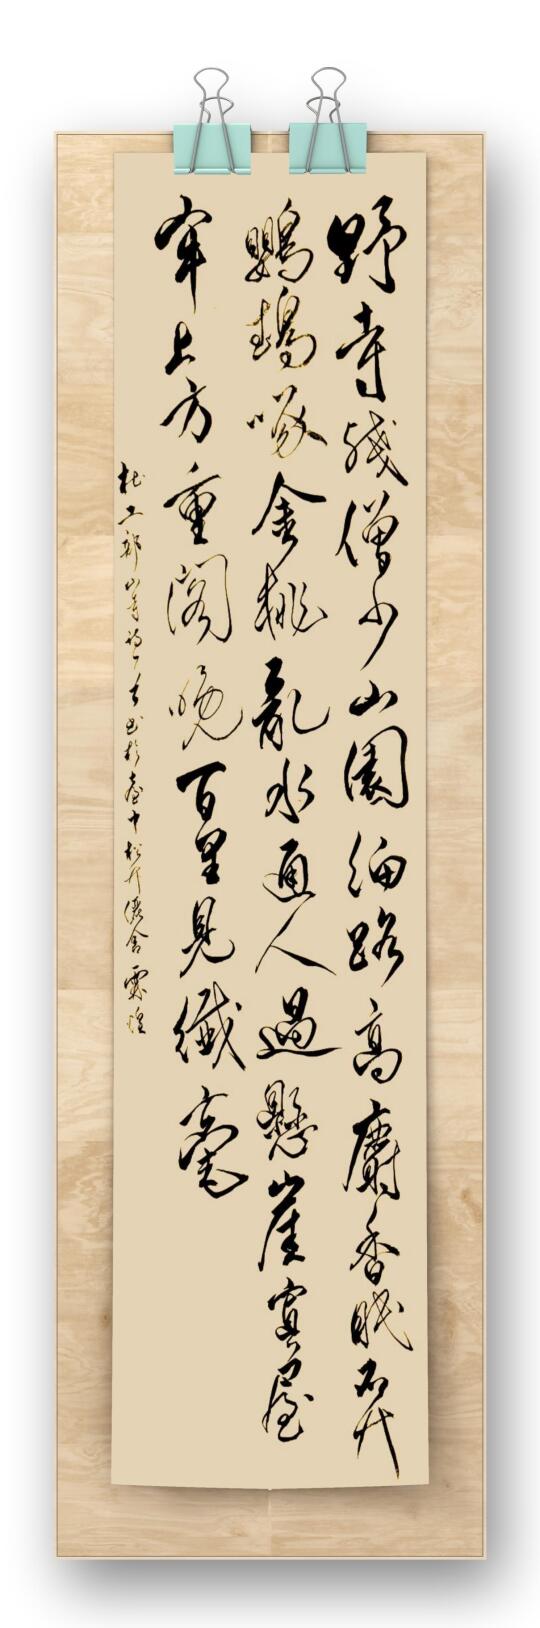 野寺殘僧少山園細路高麝香眠石竹
鸚鵡啄金桃亂水通人過懸崖置屋
牢上方重閣晚百里見纖毫
杜工部山寺詩一首書於臺中松竹舍